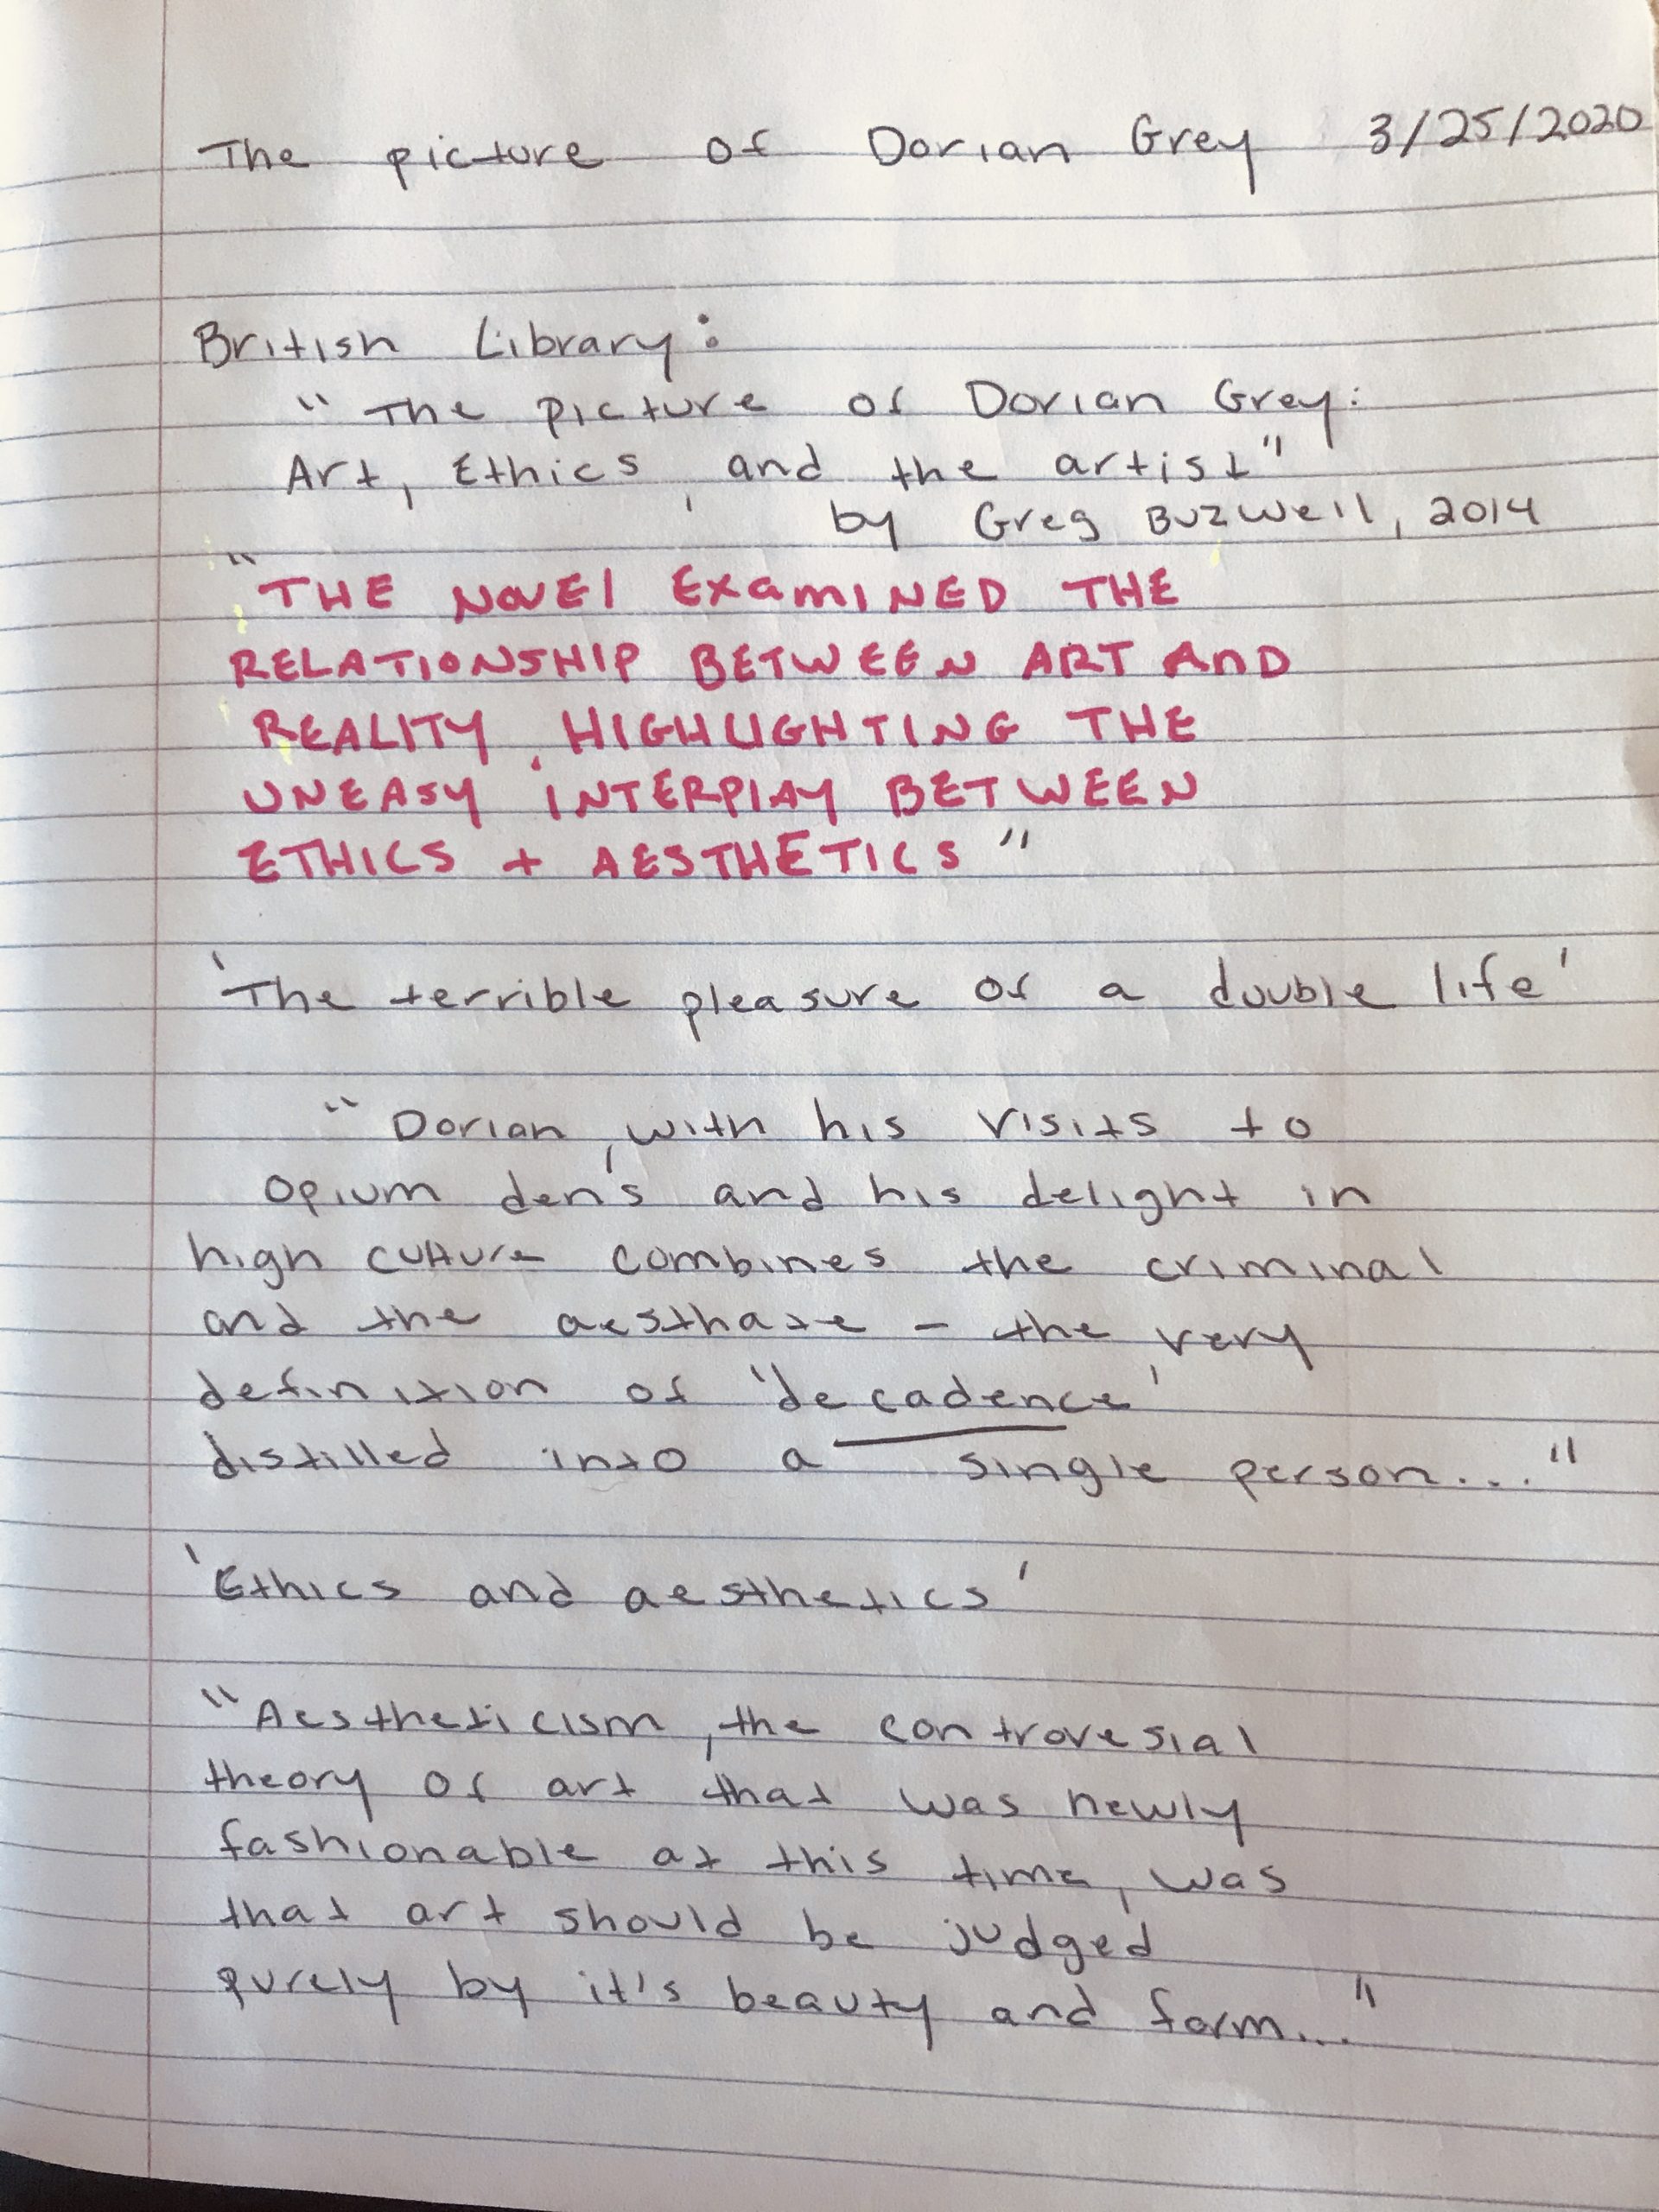 The picture of Dorian Grey 3/25/2020
British Library:
"The picture of Dorian Grey:
Art, Ethics, and the artist"
by Greg Buzwell, 2014
"THE NOVEl ExamINED THE
RELATIONSHIP BETWEEN ART AnD
REALITY, HIGHLIGHTING THE
UNEASY INTERPlAY BETWEEN
ETHICS + AESTHETICS"
'The terrible pleasure of a double life'
"Dorian, with his visits to
opium den's and his delight in
high culture combines the criminal
and the aesthate - the very
definition of 'decadence'
distilled into a single person..."
'Ethics and aesthetics'
"Aestheticism, the controvesial
theory of art that was newly
fashionable at this time, was
that art should be judged
purely by it's beauty and form..."